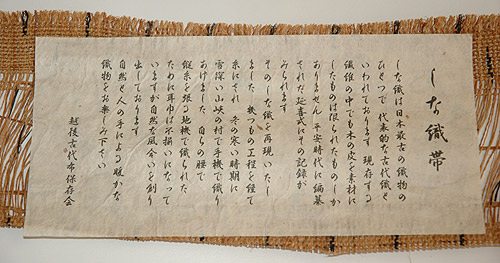 しな織帯
しな織は日本最古の織物の
ひとつで 代表的な古代織と
いわれております 現存する
繊維の中でも木の皮を素材に
したものは限られたものしか
ありません 平安時代に編纂
された延喜式にその記録が
みられます
そのしな織を再現いたし
ました 幾つもの工程を経て
糸にされ 冬の寒い時期に
雪深い山峡の村で手機で織り
あげました 自らの腰で
縦糸を張る地機で織られた
ために耳巾は不揃いになって
いますが自然な風合いを創り
出しております
自然と人の手による暖かな
織物をお楽しみ下さい
越後古代布保存会